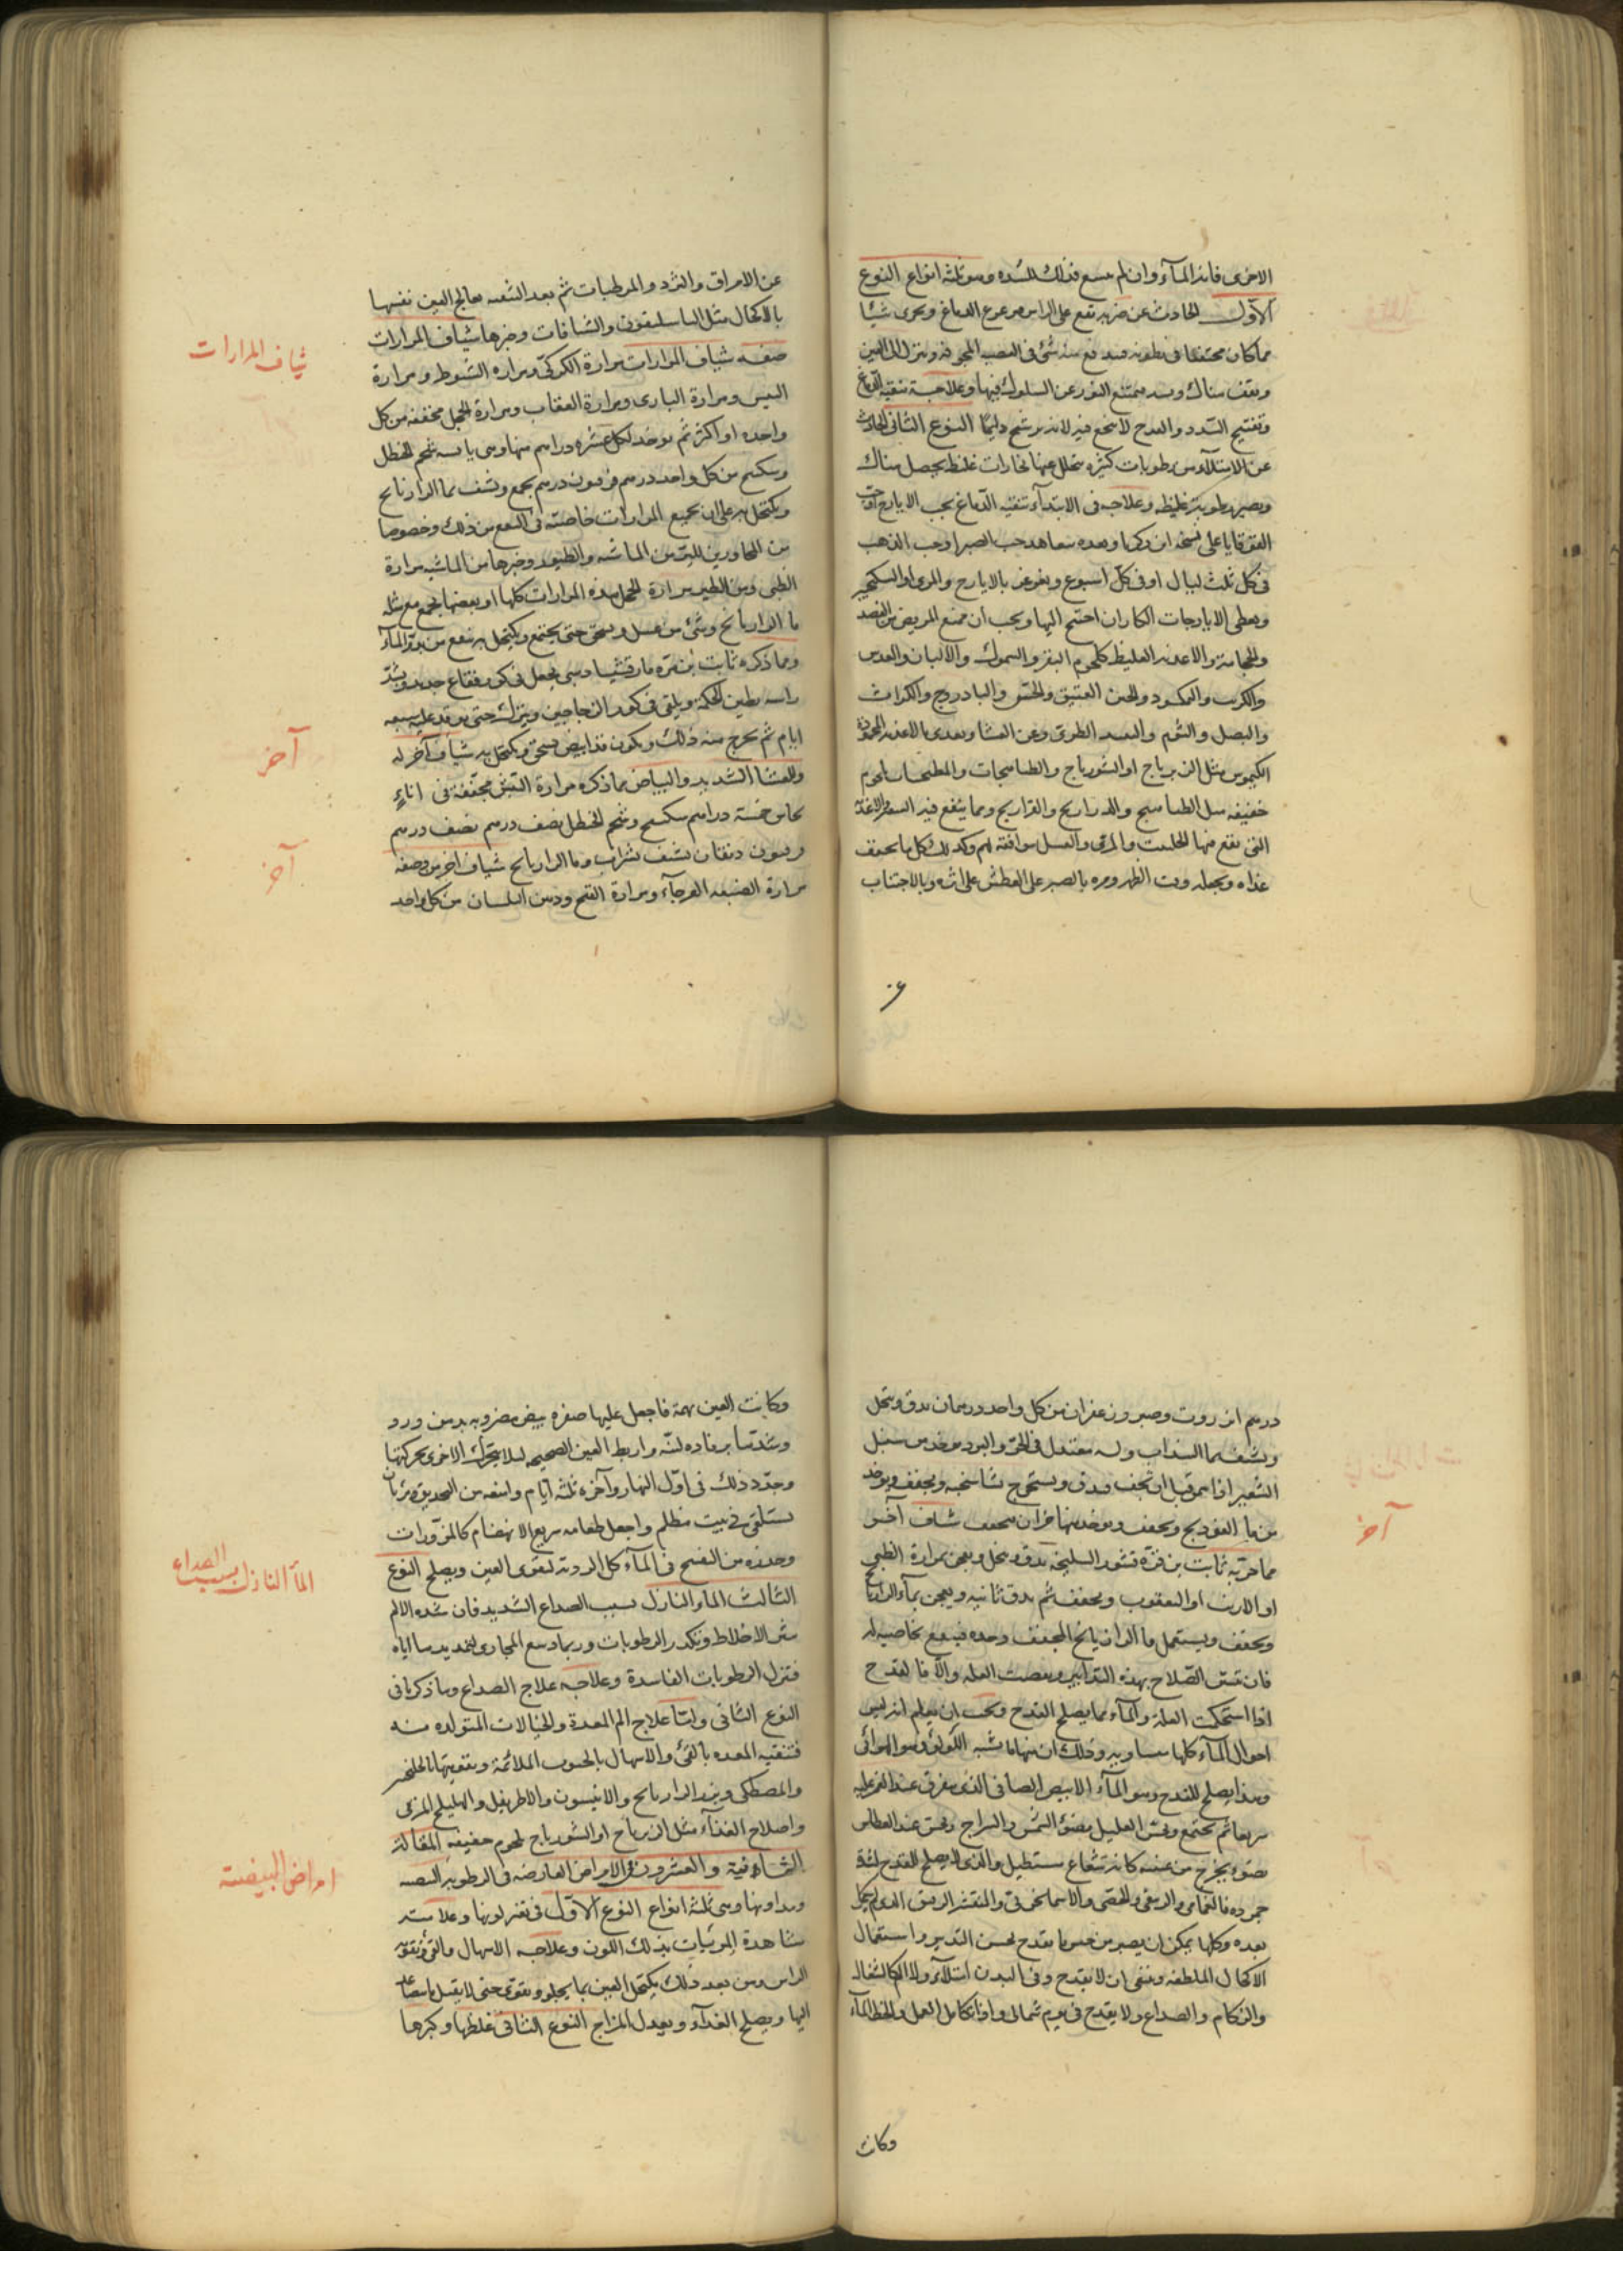 الاخرى فانه الماء وان لم يتسع فذلك للسده وهو ثلثة انواع النوع
الاول الحادث عن ضربه تقع على الراس فيزعزع الدماغ ويحرك شيئا
مما كان محتقنا في بطونه فيندفع منه شئ في العصب المجوفه وينزل الى العين
ويقف هناك ويسده فيمتنع النور عن السلوك فيها وعلاجه تنقيه الدماغ
وتفتيح السدد والقدح لا ينجع فيه لانه يرشح دايما النوع الثاني الحادث
عن الامتلاء من رطوبات كثيره تتحلل عنها بخارات غليظه يحصل هناك
ويصير رطوبة غليظه وعلاجه في الابتداء تنقيه الدماغ بحب الايارج او حب
القوقايا على نسخه ابن زكريا وبعده تعاهد حب الصبر او حب الذهب
في كل ثلث ليال او في كل اسبوع ويغرغر بالايارج والمرى او السكنجبين
ويعطى الايارجات الكبار ان احتيج اليها ويجب ان يمنع المريض من الفصد
والحجامة والاغذيه الغليظه كلحوم البقر والسموك والالبان والعدس
والكرنب والنمكسود والجبن العتيق والخس والبادروج والكراث
والبصل والثوم والنبيذ الطرى وعن العشا ويغذى بالاغذيه المحموده
الكيموس مثل الزيرباج او الشورباج والطباهجات والمطجنات بلحوم
خفيفه مثل الطياهيج والدراريج والفراريج ومما ينفع فيه السعوط والاغذيه
التي تقع فيها الحلتيت والمرى والعسل موافقة لهم وكذلك كل ما يجفف
غذاه ويجعله وقت الظهر ومره بالصبر على العطش على اثره وبالاجتناب
عن
عن الامراق والثرد والمرطبات ثم بعد التنقيه يعالج العين نفسها
بالاكحال مثل الباسليقون والشيافات وخيرها شياف المرارات
صفه شياف المرارات مرارة الكركى ومراره الشبوط ومرارة
التيس ومرارة البازى ومرارة العقاب ومرارة الحجل مجففه من كل
واحده او اكثر ثم يوخذ لكل عشره دراهم منها وهي يابسه شحم الحنظل
وسكبينج من كل واحد درهم فرفيون درهم يجمع ويشيف بماء الرازيانج
ويكتحل به على ان جميع المرارات خاصته في النفع من ذلك وخصوصا
من الماشيه والطيور وخيرها من الماشيه مرارة
الظبى ومن الطير مرارة الحجل وهذه المرارات كلها او بعضها يجمع مع مثله
ما الرازيانج وشئ من عسل ويسحق حتى يجتمع ويكتحل به ينفع من بدو الماء
ومما ذكره ثابت بن قره مارقشيشا ذهبى يجعل في كوز فقاع جديد ويشد
راسه بطين الحكمه ويلقى في كور الزجاجين ويترك حتى يوقد عليه سبعه
ايام ثم يخرج منه ذلك ويكون قد ابيض يسحق ويكتحل به شياف آخر له
وللعشا الشديد والبياض مما ذكره مرارة التيس مجففة في اناءٍ
نحاس خمسة دراهم سكبينج وشحم الحنظل نصف درهم نصف درهم
فرفيون دنقان يشيف بشراب وماء الرازيانج شياف اخر من وصفه
مرارة الضبعه العرجاء ومرارة القبج ودهن البلسان من كل واحد
شياف المرارات
آخر
آخر
درهم انزروت وصبر وزعفران من كل واحد درهمان يدق وينخل
ويشيف بماء السذاب وله معتدل في الحر والبرد يوخذ من سنبل
الشعير اذا سمن قبل ان يجف فيدق ويستخرج نشاستجه ويجفف ويوخذ
من ماء الفوذنج ويجفف ويوخذ منهما جزآن يجفف شياف آخر
مما جربه ثابت بن قره قشور السليخه يدق وينخل ويعجن بمرارة الظبى
او الارنب او اليعقوب ويجفف ثم يدق ثانيه ويعجن بماء الرازيانج
ويجفف ويستعمل ماء الرازيانج المجفف وحده فينفع بخاصيه له
فان تمت الصلاح بهذه التدابير ونقصت العله والا فالقدح
اذا استحكمت العلة والماء مما يصلح للقدح ويجب ان يعلم انه ليس
احوال الماء كلها متساويه وذلك ان منها ما يشبه اللولو وهو الهوائى
وهذا يصلح للقدح وهو الماء الابيض الصافى الذى يتفرق عند الغمز عليه
سريعا ثم يجتمع ويحس العليل بضوء الشمس والسراج ويحس عند العطاس
بضوء يخرج من عينه كانه شعاع مستطيل والذى لا يصلح للقدح لشدة
جموده فالغمامى والزيبقى والجصى والاسمانجونى والمنتشر الرقيق
بعده وكلها يمكن ان يصير من جنس ما يقدح بحسن التدبير واستعمال
الاكحال الملطفه وينبغي ان لا يقدح وفي البدن امتلاء ولا الم كالسعال
والزكام والصداع ولا يقدح في يوم شمالى واذا تكامل العمل وانحط الماء
وكانت
آخر
وكانت العين فاجعل عليها صفره بيض مضروبه بدهن ورد
وشدها برفاده لينه واربط العين الصحيحه ليلا يتحرك الاخرى بحركتها
وجدد ذلك في اول النهار وآخره ثلثه ايام وامنعه من التحديق ومره بان
يستلقى في بيت مظلم واجعل طعامه سريع الانهضام كالمزورات
وحذره من النفخ في الماء كل الردية لتقوى العين ويصلح النوع
الثالث الماء النازل بسبب الصداع الشديد فان شده الالم
تثير الاخلاط وتكدر الرطوبات وربما وسع المجارى لتمديدها اياه
فتنزل الرطوبات الفاسدة وعلاجه علاج الصداع وما ذكرنا في
النوع الثاني واما علاج الم المعدة والخيالات المتولده منه
فتنقيه المعده بالقئ والاسهال بالحبوب الملائمة وبتقويتها بالجلنجبين
والمصطكى وبزر الرازيانج والانيسون والاطريفل والهليلج المربى
واصلاح الغذآء مثل الزيرباج او الشورباج بلحوم خفيفه المقالة
الثانية والعشرون في الامراض العارضه في الرطوبه البيضيه
ومداوتها وهي ثلثة انواع النوع الاول في تغير لونها وعلامته
مشاهدة المرئيات بذلك اللون وعلاجه الاسهال والقئ وتقويه
الراس ومن بعد ذلك يكتحل العين بما يجلو ويقوى حتى لا يقبل ما ينصب
اليها ويصلح الغذاء ويعدل المزاج النوع الثاني غلظها وكبرها
الماء النازل بسبب الصداع
امراض البيضيه